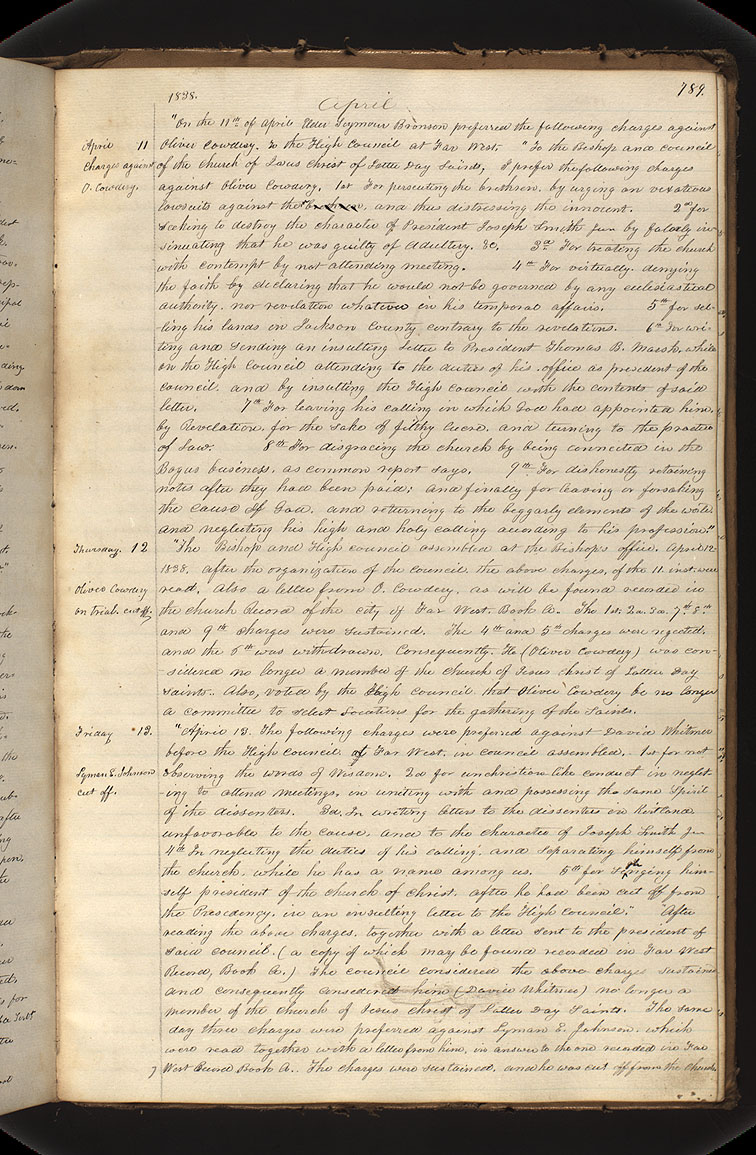 1838.
789.
April
"On the 11th of April Elder Seymour Bronson preferred the following charges against
April 11
Oliver Cowdery, to the High Council at Far West. "To the Bishop and council
Charges against
of the church of Jesus Christ of Latter Day Saints, I prefer the following charges
O. Cowdery.
against Oliver Cowdery. 1st For persecuting the brethren, by urging on vexatious
lawsuits against the brethren, and thus distressing the innocent. 2nd for
seeking to destroy the character of President Joseph Smith Jun by falsely in-
sinuating that he was guilty of adultery. &c. 3rd For treating the church
with contempt by not attending meeting. 4th For virtually denying
the faith by declaring that he would not be governed by any eclesiastical
authority, nor revelation whatever in his temporal affairs. 5th for sel-
ling his lands in Jackson County contrary to the revelations. 6th For wri-
ting and sending an insulting letter to President Thomas B. Marsh, while
on the High Council attending to the duties of his office as president of the
council, and by insulting the High Council with the contents of said
letter. 7th For leaving his calling in which God had appointed him,
by Revelation, for the sake of filthy lucre, and turning to the practice
of Law. 8th For disgracing the church by being connected in the
Bogus business, as common report says. 9th For dishonestly retaining
notes after they had been paid; and finally for leaving or forsaking
the cause of God, and returning to the beggarly elements of the world
and neglecting his high and holy calling according to his profession."
Thursday 12
"The Bishop and High council assembled at the Bishop's office, April 12
1838. After the organization of the council, the above charges, of the 11 inst. were
Oliver Cowdery
read, also a letter from O. Cowdery, as will be found recorded in
on trial. cut off.
the church Record of the city of Far West. Book A. The 1st. 2d. 3d. 7th 8th
and 9th charges were sustained. The 4th and 5th charges were rejected,
and the 6th was withdrawn. Consequently, He (Oliver Cowdery) was con-
sidered no longer a member of the church of Jesus christ of Latter Day
Saints. Also, voted by the high Council that Oliver Cowdery be no longer
a committee to select Locations for the gathering of the Saints.
Friday 13.
"April 13. The following charges were preferred against David Whitmer
before the High Council at Far West, in council assembled. 1st for not
Lyman E. Johnson
observing the words of Wisdom, 2d for unchristian-like conduct in neglect-
cut off.
-ing to attend meetings, in uniting with and possessing the same Spirit
of the dissenters. 3d. In writing letters to the dissenters in Kirtland
unfavorable to the cause, and to the character of Joseph Smith Jr
4th In neglecting the duties of his calling, and separating himself from
the church, while he has a name among us. 5th for signing him-
self president of the church of Christ, after he had been cut off from
the Presidency, in an insulting letter to the High Council." "After
reading the above charges, together with a letter sent to the president of
said council, (a copy of which may be found recorded in Far West
Record, Book A.) The council considered the above charges sustained
and consequently considered him (David Whitmer) no longer a
member of the church of Jesus christ of Latter Day Saints. The same
day three charges were preferred against Lyman E. Johnson, which
were read together with a letter from him, in answer to the one recorded in Far
West Record Book A. The charges were sustained, and he was cut off from the church.